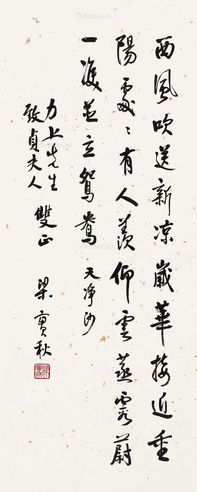 西風吹送新涼歲華接近重
陽處處有人羨仰雲蒸霞蔚
一雙並立鴛鴦 天净沙
力上先生
致貞夫人 雙正
梁實秋